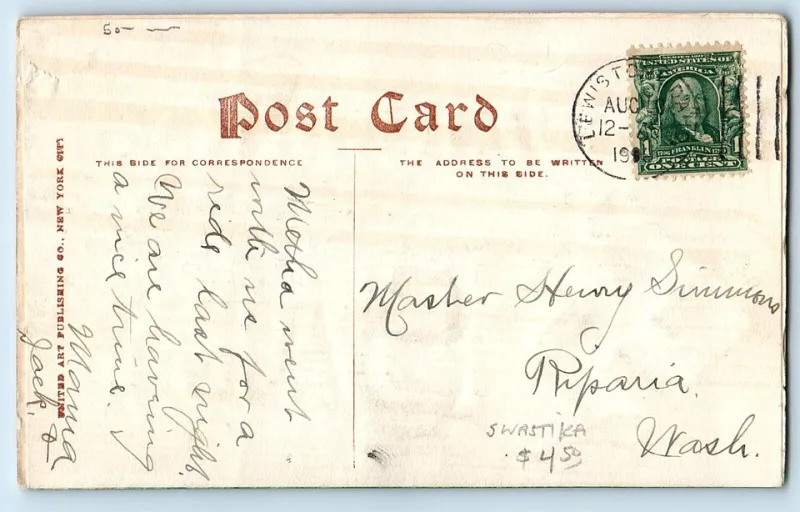 50 —
Post Card
THIS SIDE FOR CORRESPONDENCE
THE ADDRESS TO BE WRITTEN
ON THIS SIDE.
UNITED ART PUBLISHING CO., NEW YORK CITY
LEWISTO
AUG
12-
19
SERIES 1902
UNITED STATES OF
AMERICA
1
1
FRANKLIN
POSTAGE
ONE CENT
Metha went
with us for a
ride last night
We are having
a nice time.
Mama
Jack. &
Master Henry Simmons
Riparia.
Wash.
SWASTIKA
$4.50